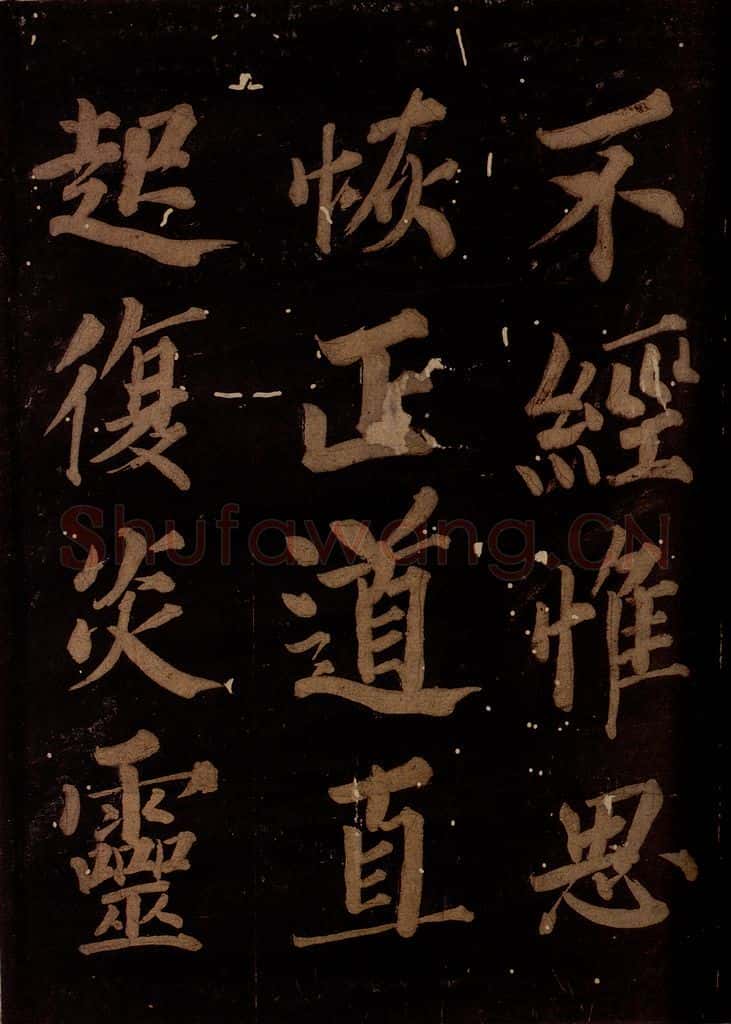 不經惟思
恢正道直
起復炎靈
Shufawang.CN